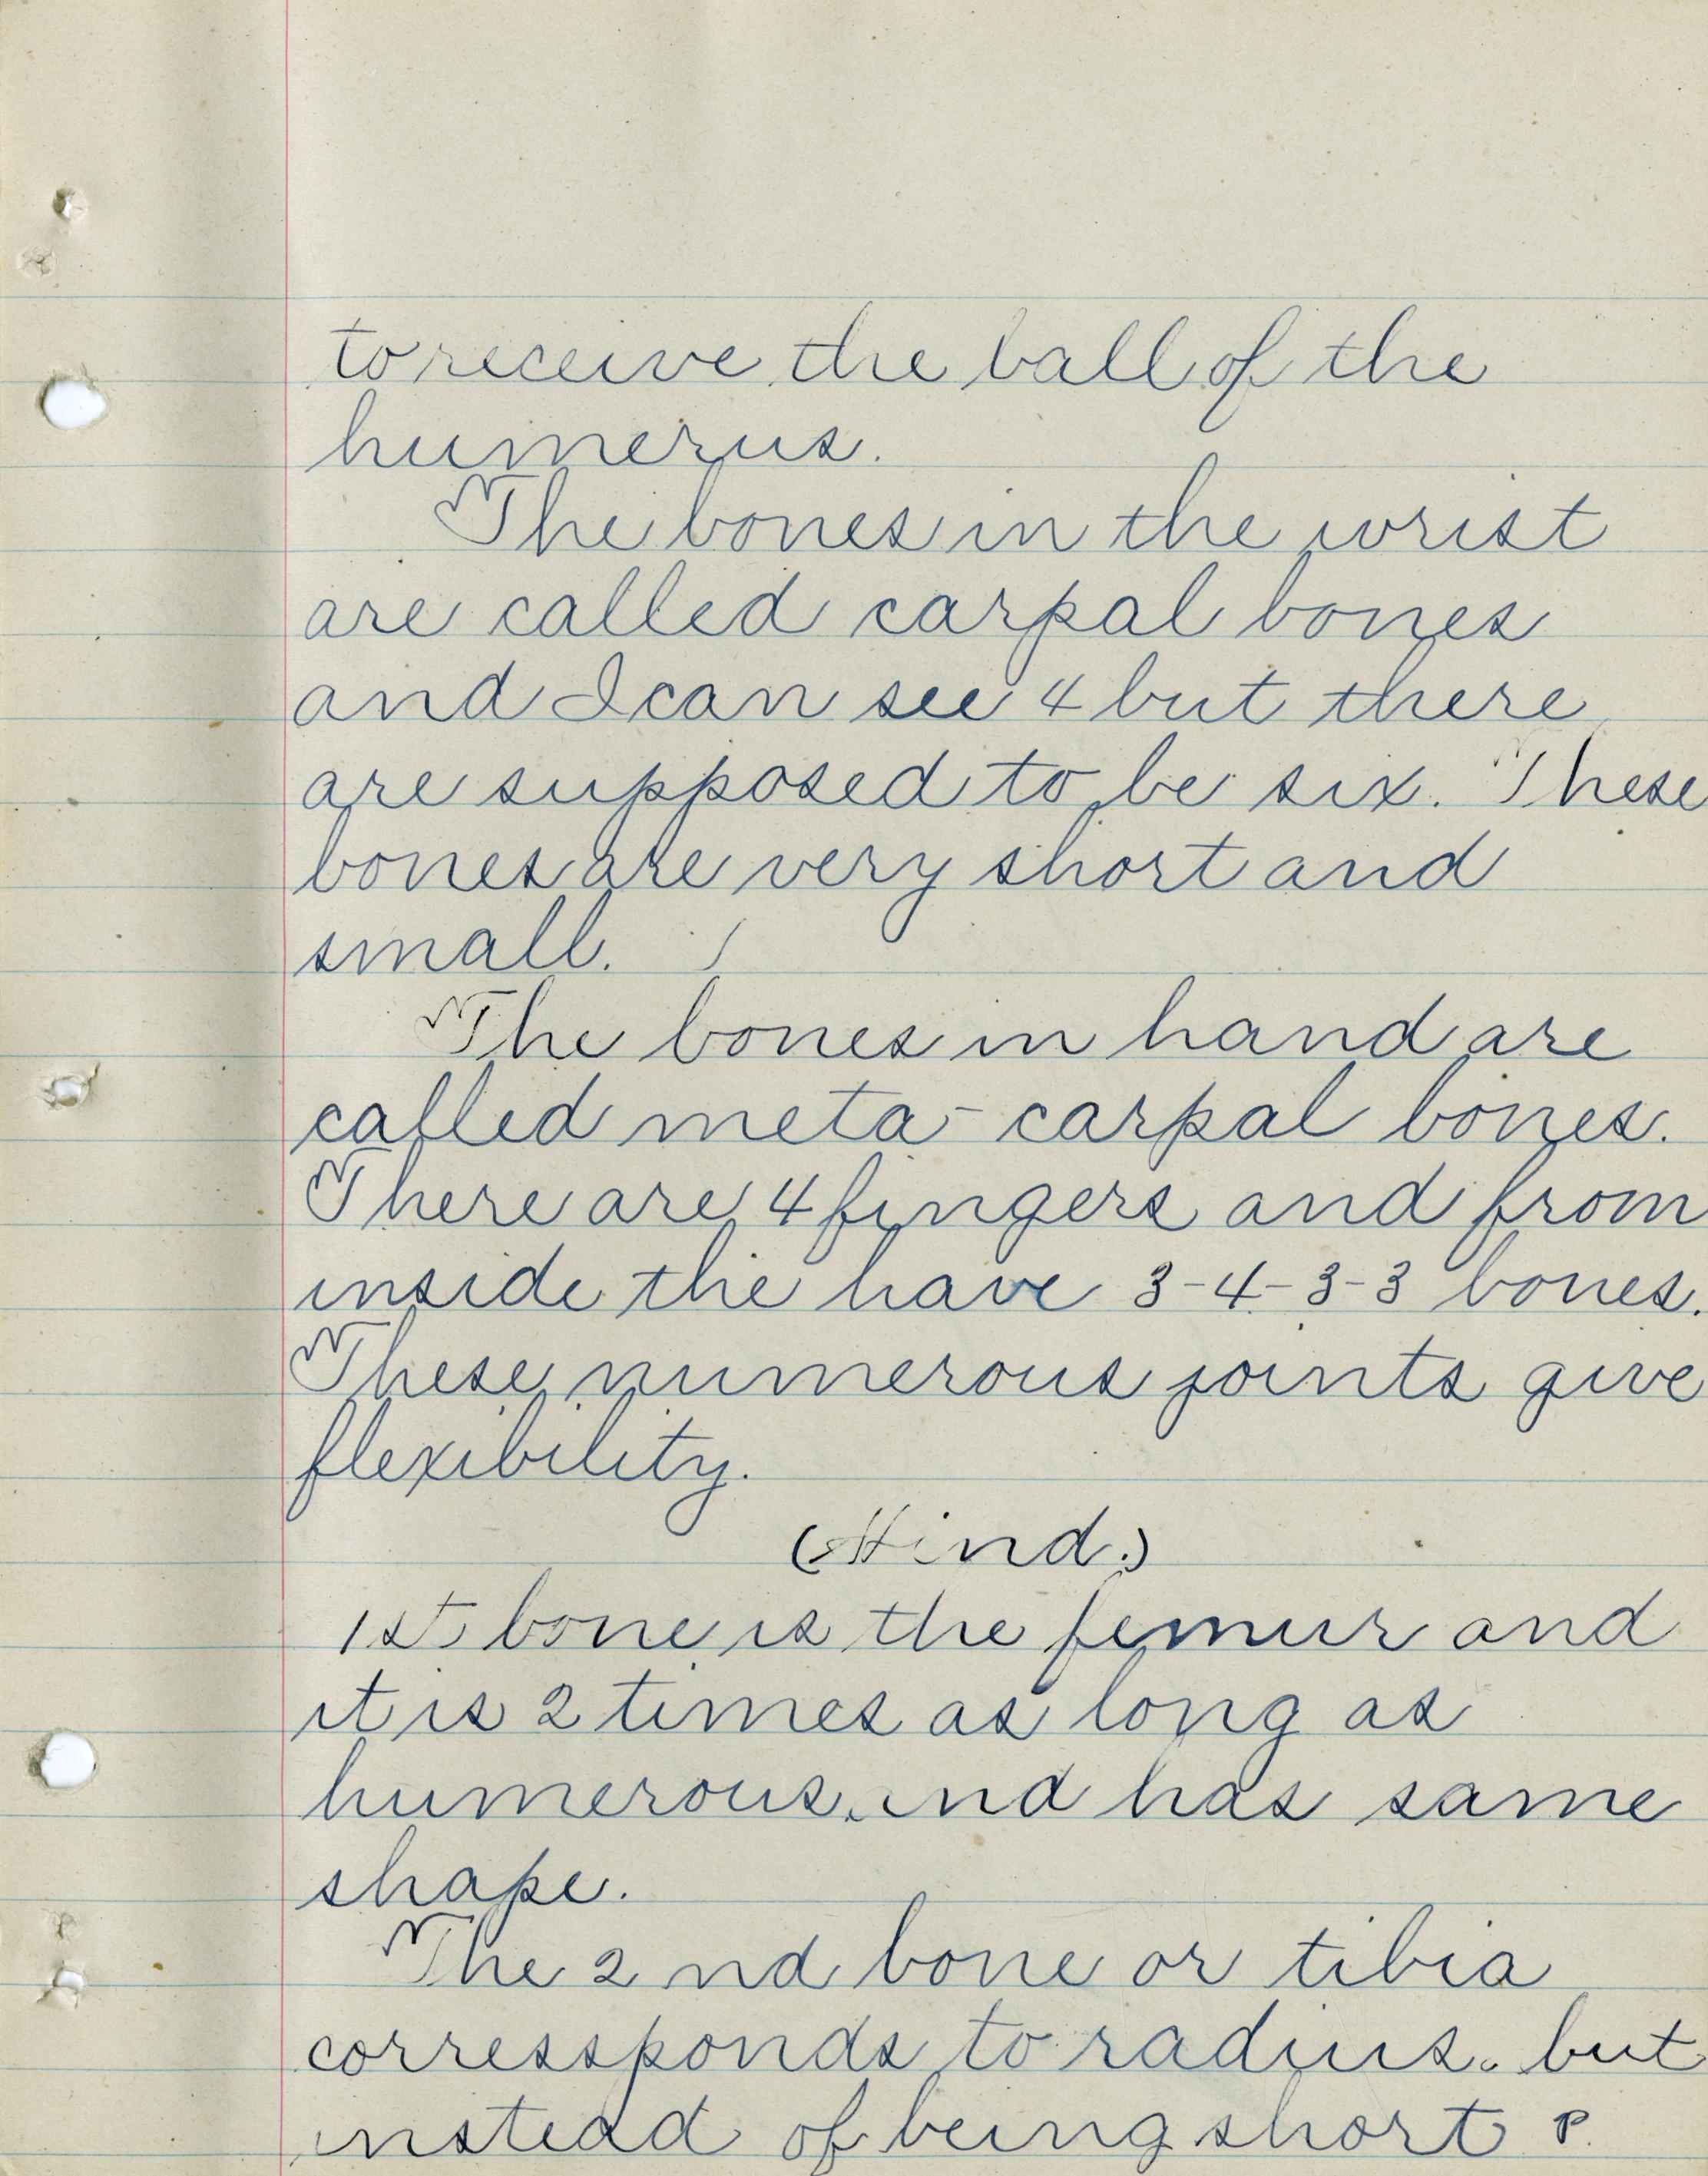 to receive the ball of the
humerus.
The bones in the wrist
are called carpal bones
and I can see 4 but there
are supposed to be six. These
bones are very short and
small.
The bones in hand are
called meta-carpal bones.
There are 4 fingers and from
inside the have 3-4-3-3 bones.
These numerous joints give
flexibility.
(Hind.)
1st bone is the femur and
it is 2 times as long as
humerous. and has same
shape.
The 2nd bone or tibia
corressponds to radius. but
instead of being short